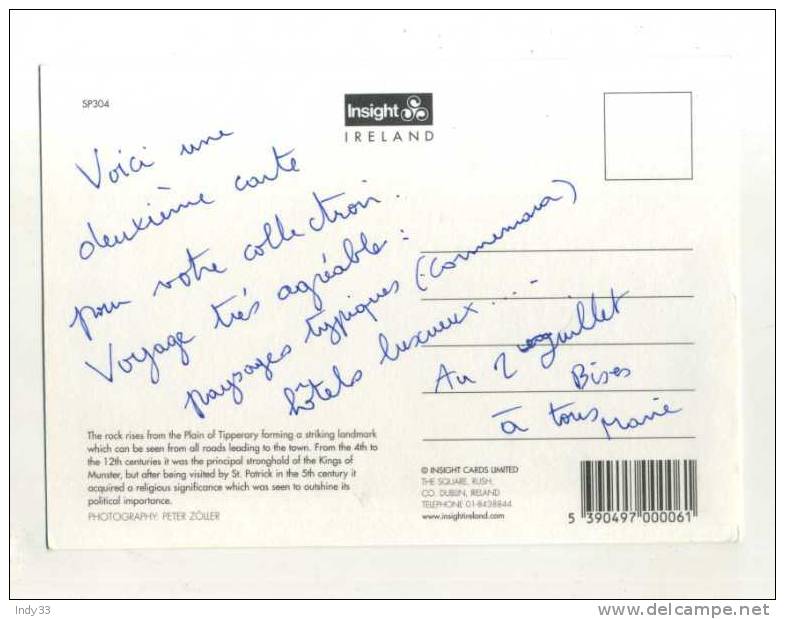 SP304
Insight
IRELAND
Voici une
deuxième carte
pour votre collection.
Voyage très agréable :
paysages typiques (Connemara)
hôtels luxueux....
Au 2 juillet
Bises
à tous
The rock rises from the Plain of Tipperary forming a striking landmark
which can be seen from all roads leading to the town. From the 4th to
the 12th centuries it was the principal stronghold of the Kings of
Munster, but after being visited by St. Patrick in the 5th century it
acquired a religious significance which was seen to outshine its
political importance.
PHOTOGRAPHY: PETER ZÖLLER
© INSIGHT CARDS LIMITED
THE SQUARE, RUSH,
CO. DUBLIN, IRELAND
TELEPHONE 01-8438844
www.insightireland.com
5 390497 000061
Indy33
www.delcampe.net